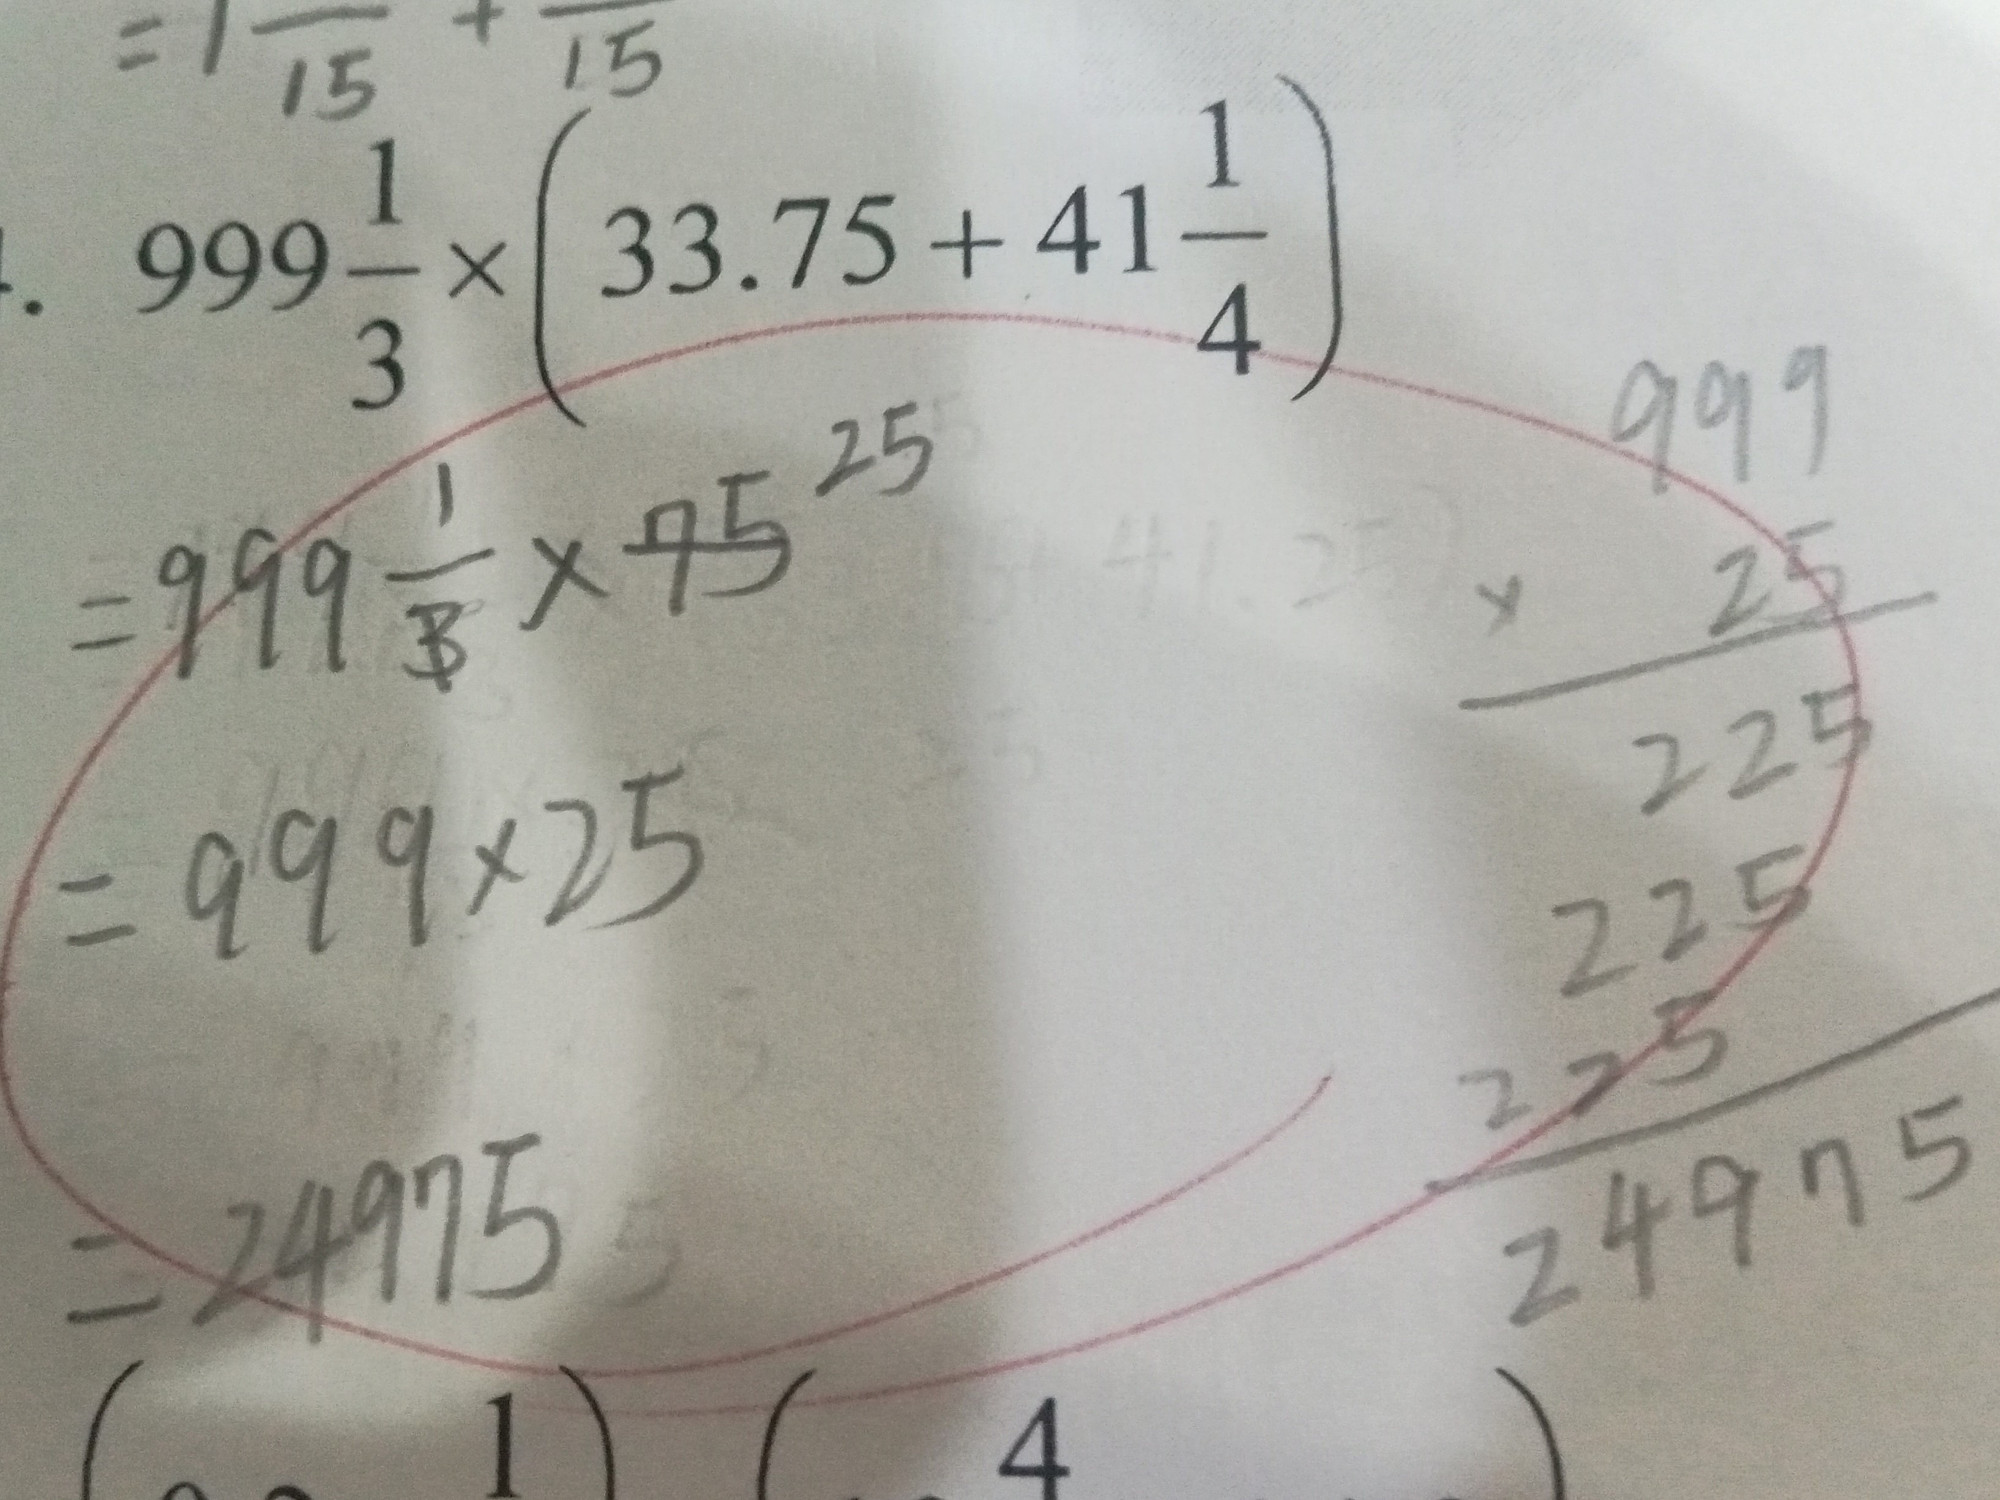 = 1 /15 + /15
. 999 1/3 × ( 33.75 + 41 1/4 )
= 999 1/3 × 75 25
= 999 × 25
= 24975
999
× 25
225
225
225
24975
( 1 ) ( 4 )